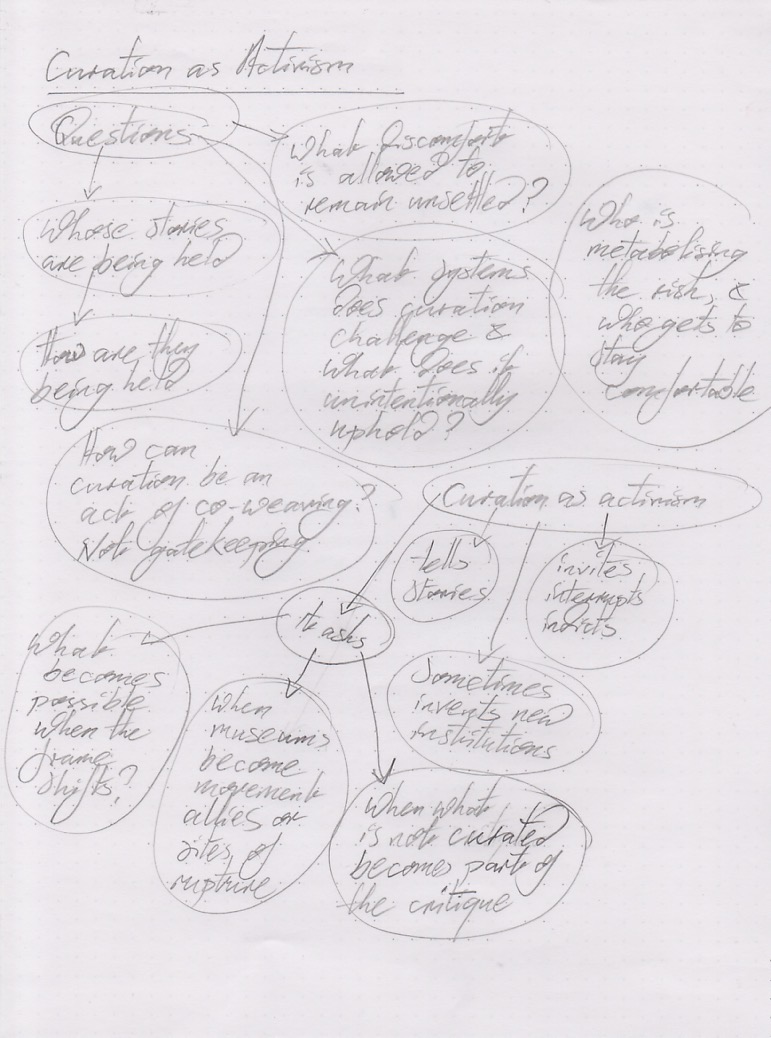 Curation as Activism
Questions
What discomfort
is allowed to
remain unsettled?
Whose stories
are being held
How are they
being held
What systems
does curation
challenge &
what does it
unintentionally
uphold?
Who is
metabolising
the risk, &
who gets to
stay
comfortable
How can
curation be an
act of co-weaving?
Not gatekeeping
Curation as activism
tells
stories
invites
interrupts
indicts
It asks
Sometimes
invents new
institutions
What
becomes
possible
when the
frame
shifts?
When
museums
become
movement
allies or
sites of
rupture
When what
is not curated
becomes part of
the critique